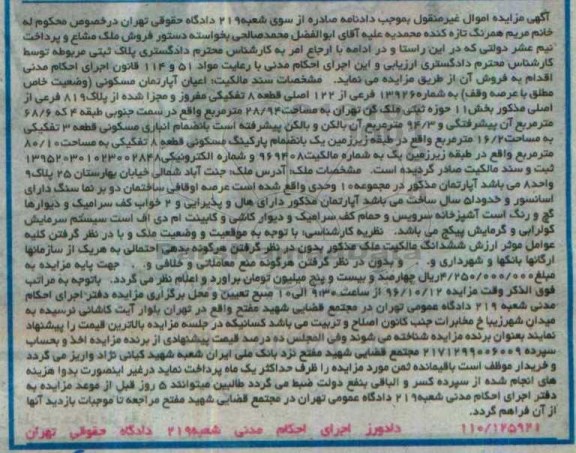 آگهی مزایده اموال غیرمنقول بموجب دادنامه صادره از سوی شعبه۲۱۹ دادگاه حقوقی تهران درخصوص محکوم له
خانم مریم همرنگ تازه کنده محمدیه علیه آقای ابوالفضل محمدصالحی بخواسته دستور فروش ملک مشاع و پرداخت
نیم عشر دولتی که در این راستا و در ادامه با ارجاع امر به کارشناس محترم دادگستری پلاک ثبتی مربوطه توسط
کارشناس محترم دادگستری ارزیابی و این اجرای احکام مدنی با رعایت مواد ۵۱ و ۱۱۴ قانون اجرای احکام مدنی
اقدام به فروش آن از طریق مزایده می نماید. مشخصات سند مالکیت: اعیان آپارتمان مسکونی (وضعیت خاص
مطلق با عرصه وقف) به شماره۱۳۹۲۶ فرعی از ۱۲۲ اصلی قطعه ۸ تفکیکی مفروز و مجزا شده از پلاک۸۱۹ فرعی از
اصلی مذکور بخش۱۱ حوزه ثبتی ملک کن تهران به مساحت۲۸/۹۴ مترمربع واقع در سمت جنوبی طبقه ۴ که ۶۸/۶
مترمربع آن پیشرفتگی و ۹۴/۳ مترمربع آن بالکن و بالکن پیشرفته است بانضمام انباری مسکونی قطعه ۳ تفکیکی
به مساحت۱۶/۲ مترمربع واقع در طبقه زیرزمین یک بانضمام پارکینگ مسکونی قطعه ۸ تفکیکی به مساحت۸۰/۱۰
مترمربع واقع در طبقه زیرزمین یک به شماره مالکیت۹۶۹۴۰۸ و شماره الکترونیکی۱۳۹۵۲۰۳۰۱۰۲۳۰۰۲۸۴۸
ثبت و سند مالکیت صادر گردیده است. مشخصات ملک: آدرس ملک: جنت آباد شمالی خیابان بهارستان ۲۵ پلاک۹
واحد۸ می باشد آپارتمان مذکور در مجموعه۱۰ واحدی واقع شده است عرصه اوقافی ساختمان دو بر نما سنگ دارای
آسانسور و حدود۵ سال ساخت می باشد آپارتمان مذکور دارای هال و پذیرایی و ۲ خواب کف سرامیک و دیوارها
گچ و رنگ است آشپزخانه سرویس و حمام کف سرامیک و دیوار کاشی و کابینت ام دی اف است سیستم سرمایش
کولرآبی و گرمایش پکیج می باشد. نظریه کارشناسی: با توجه به موقعیت و وضعیت ملک و با در نظر گرفتن کلیه
عوامل موثر ارزش ششدانگ مالکیت ملک مذکور بدون در نظر گرفتن هرگونه بدهی احتمالی به هریک از سازمانها
ارگانها بانکها و شهرداری و. . . و بدون در نظر گرفتن هرگونه منع معاملاتی و خلافی و. . . جهت پایه مزایده به
مبلغ۴/۲۵۰/۰۰۰/۰۰۰ریال چهارصد و بیست و پنج میلیون تومان برآورد و اعلام نظر می گردد. باتوجه به مراتب
فوق الذکر وقت مزایده ۹۶/۱۰/۱۲ از ساعت ۹:۳۰ الی۱۰ صبح تعیین و محل برگزاری مزایده دفتر اجرای احکام
مدنی شعبه ۲۱۹ دادگاه عمومی تهران در مجتمع قضایی شهید مفتح واقع در تهران بلوار آیت کاشانی نرسیده به
میدان شهرزیبا خ مخابرات جنب کانون اصلاح و تربیت می باشد کسانیکه در جلسه مزایده بالاترین قیمت را پیشنهاد
نمایند بعنوان برنده مزایده شناخته می شوند وفی المجلس ده درصد قیمت پیشنهادی از برنده مزایده اخذ و بحساب
سپرده ۲۱۷۱۲۹۹۰۰۶۰۰۹ مجتمع قضایی شهید مفتح نزد بانک ملی ایران شعبه شهید کیانی نژاد واریز می گردد
و خریدار موظف است باقیمانده ثمن مورد مزایده را ظرف حداکثر یک ماه پرداخت نماید درغیر اینصورت بدوا هزینه
های انجام شده از سپرده کسر و الباقی بنفع دولت ضبط می گردد طالبین میتوانند ۵ روز قبل از موعد مزایده به
دفتر اجرای احکام مدنی شعبه۲۱۹ دادگاه عمومی تهران در مجتمع قضایی شهید مفتح مراجعه تا موجبات بازدید آنها
از آن فراهم گردد.
۱۱۰/۱۲۵۹۲۱ دادورز اجرای احکام مدنی شعبه۲۱۹ دادگاه حقوقی تهران